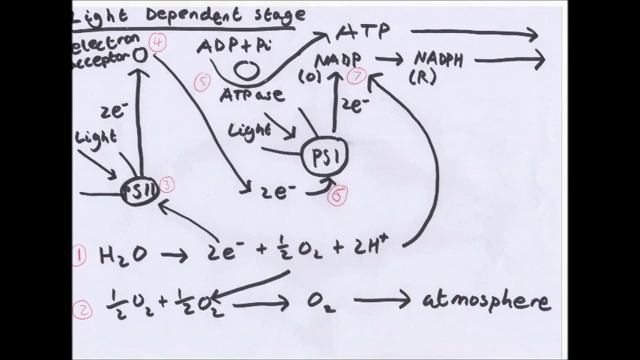 Light Dependent stage
electron acceptor
④
ADP + Pi
ATP
⑤
ATPase
NADP (O)
⑦
NADPH (R)
2e⁻
Light
PSII
③
Light
2e⁻
PSI
2e⁻
⑥
① H₂O → 2e⁻ + ½O₂ + 2H⁺
② ½O₂ + ½O₂ → O₂ → atmosphere